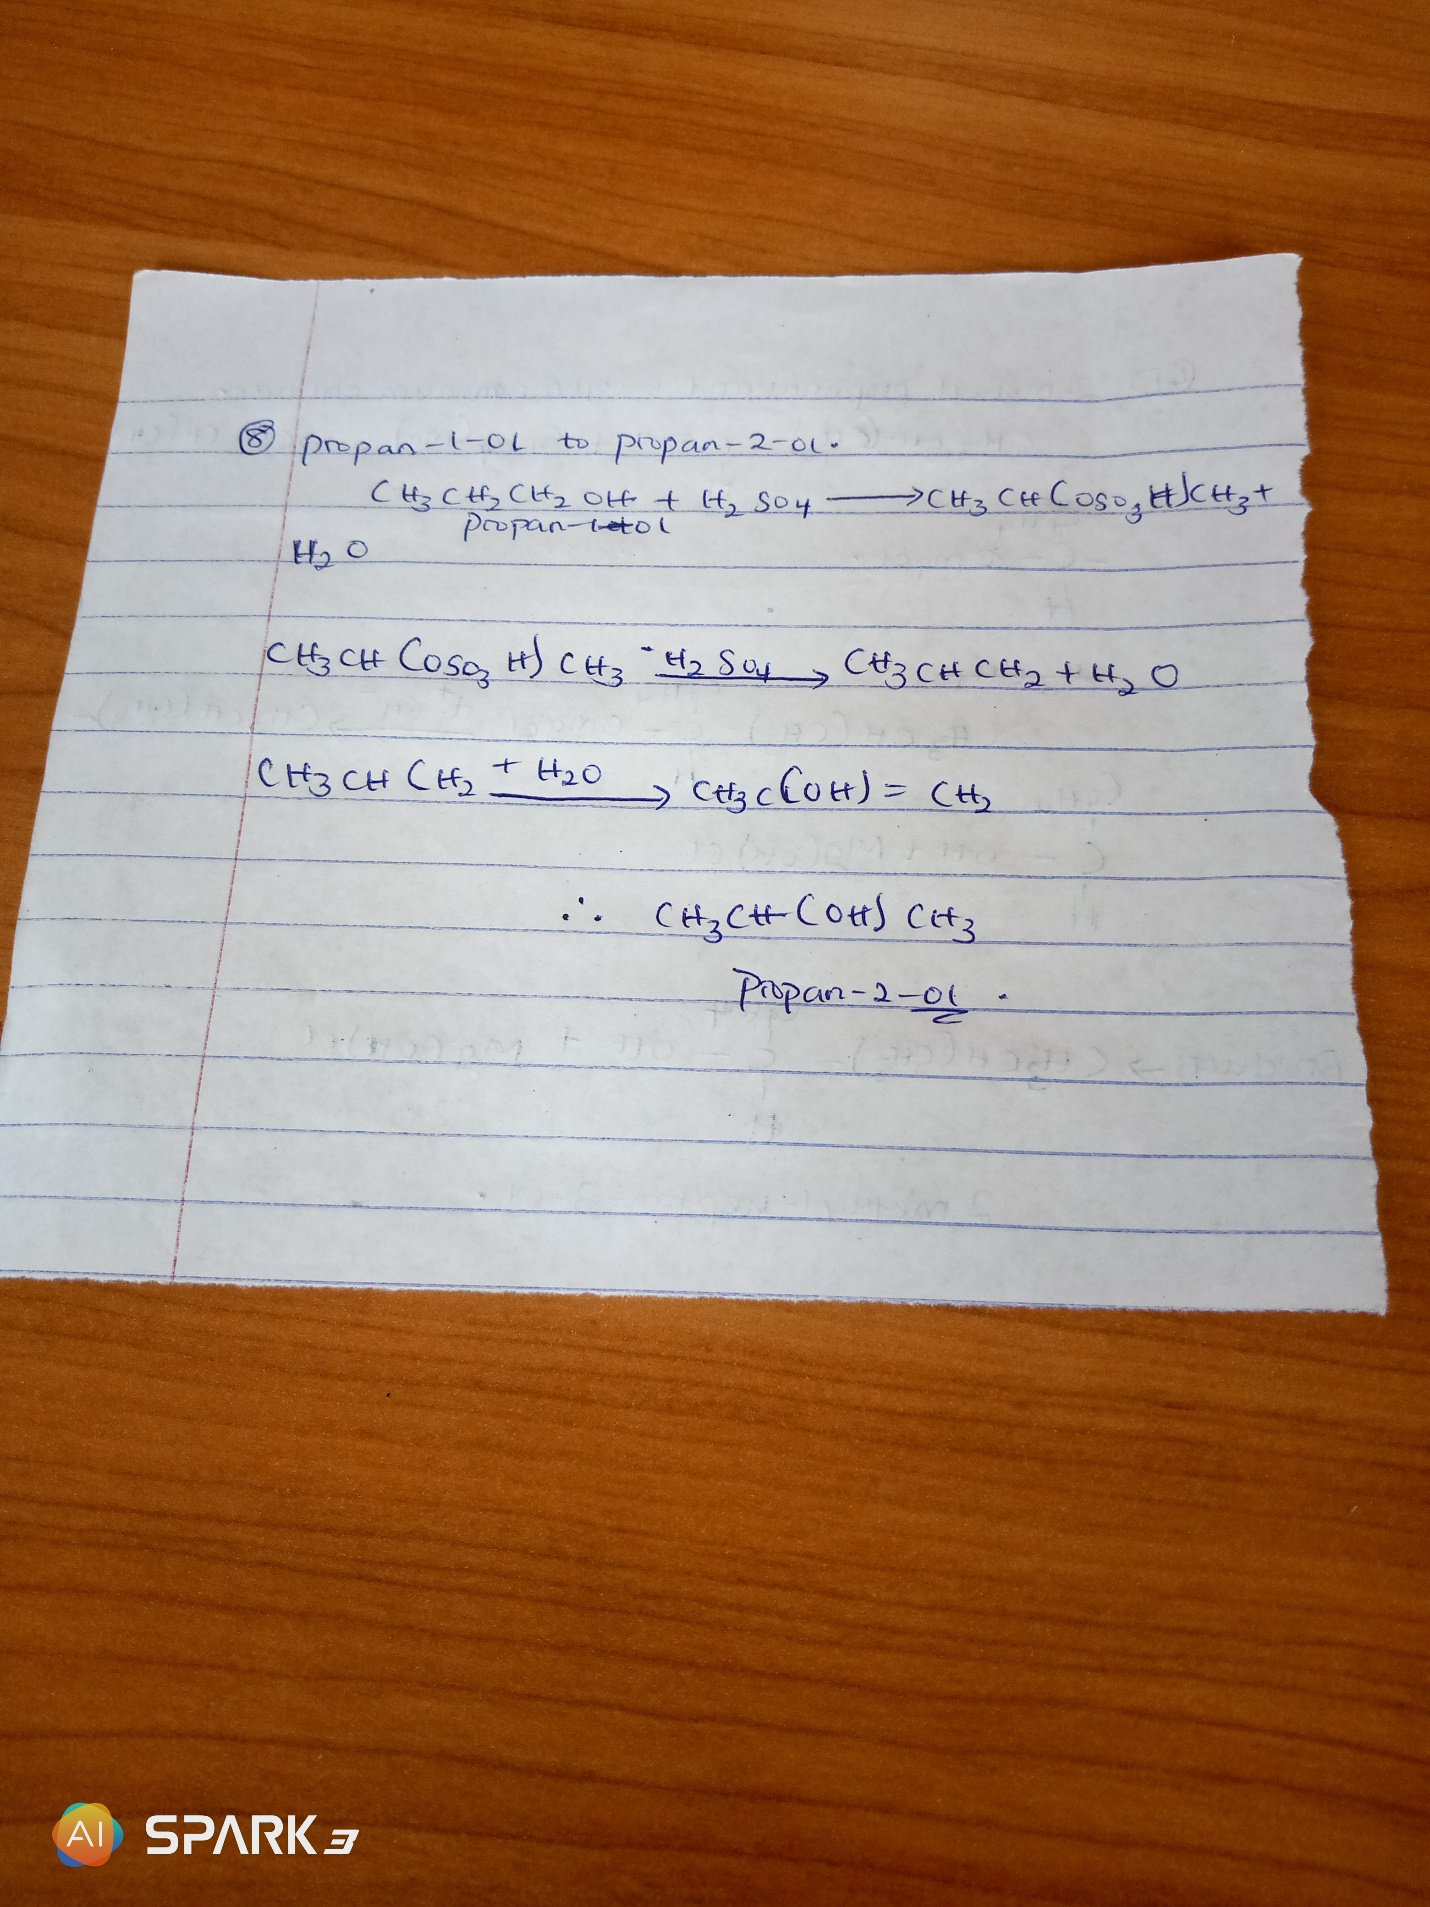 ⑧ propan-1-OL to propan-2-OL.
CH₃CH₂CH₂OH + H₂SO₄ ⟶ CH₃CH(OSO₃H)CH₃ +
propan-1-ol
H₂O
CH₃CH(OSO₃H)CH₃ -H₂SO₄⟶ CH₃CHCH₂ + H₂O
CH₃CHCH₂ +H₂O⟶ CH₃C(OH)=CH₂
∴ CH₃CH(OH)CH₃
Propan-2-ol.
AI SPARK 3